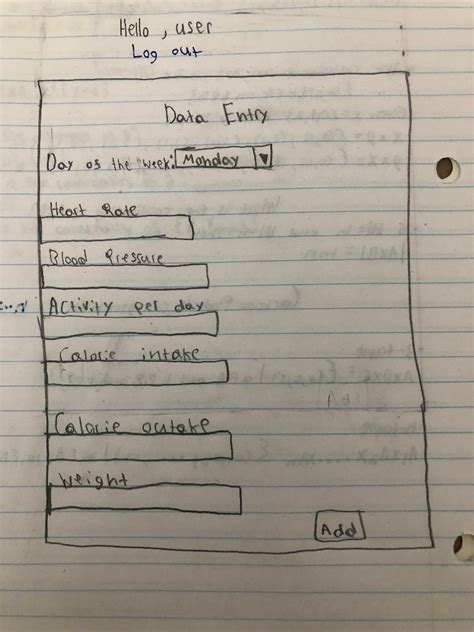 Hello, user
Log out
Data Entry
Day of the week: Monday
Heart Rate
Blood Pressure
Activity per day
Calorie intake
Calorie outake
Weight
Add